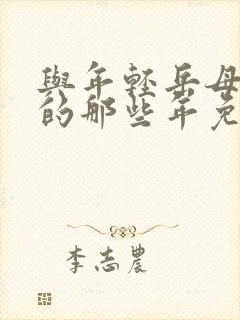 與年輕岳母
的那些年免
李志農